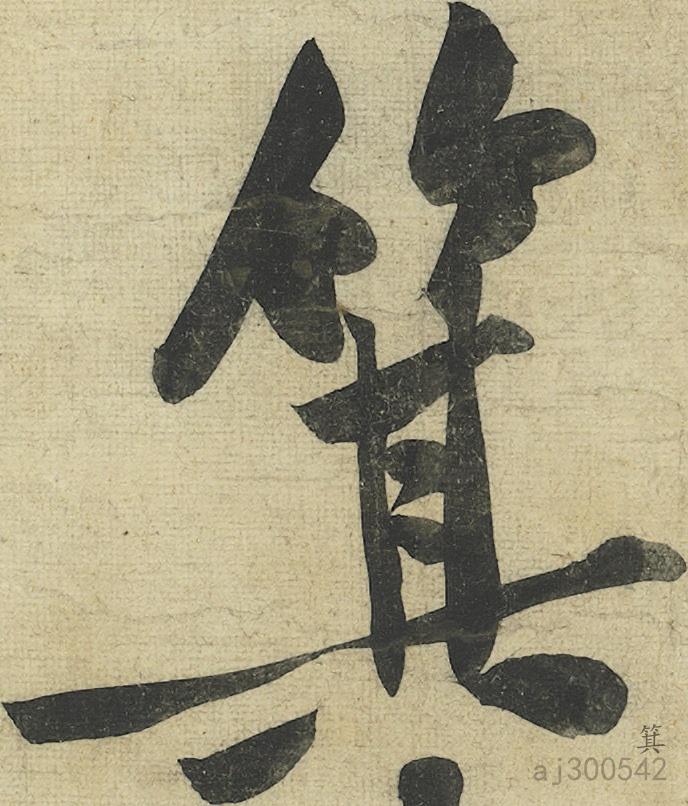 箕
箕
aj300542